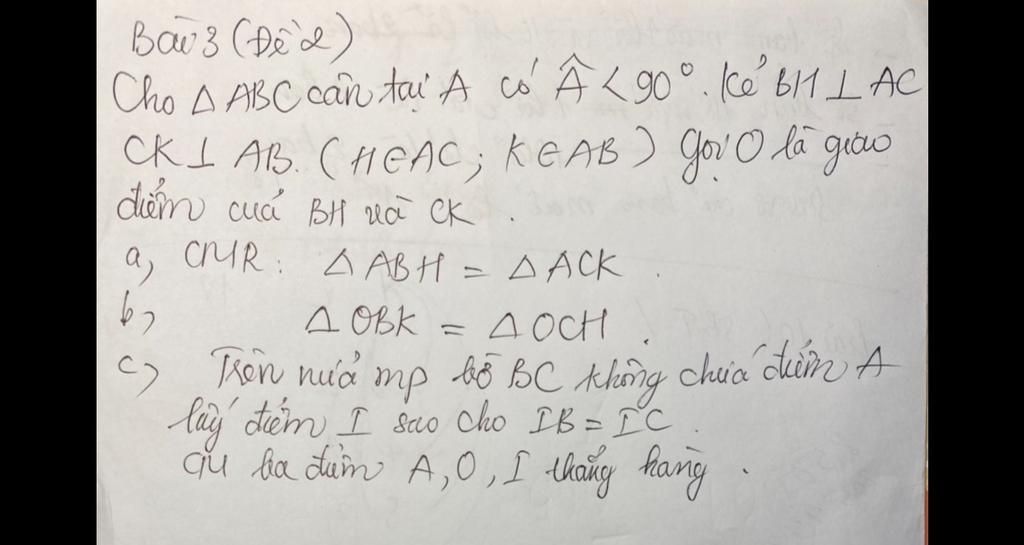 Bài 3 (Đề 2)
Cho △ ABC cân tại A có Â < 90°. Kẻ BH ⊥ AC
CK ⊥ AB. (H∈AC; K∈AB) Gọi O là giao
điểm của BH và CK.
a, CMR: △ ABH = △ ACK.
b, △ OBK = △ OCH.
c, Trên nửa mp bờ BC không chứa điểm A
lấy điểm I sao cho IB = IC.
CM ba điểm A, O, I thẳng hàng.